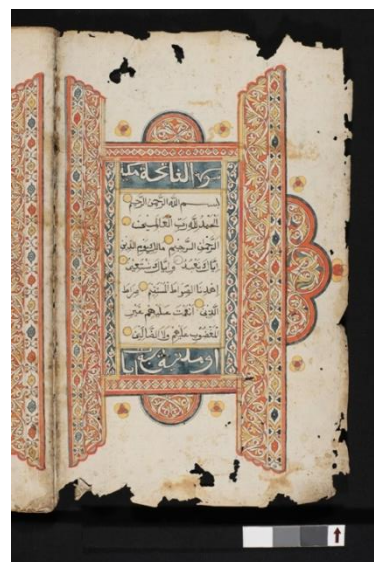 سورة الفاتحة مكية
بسم الله الرحمن الرحيم
الحمد لله رب العالمين
الرحمن الرحيم مالك يوم الدين
إياك نعبد وإياك نستعين
اهدنا الصراط المستقيم صراط
الذين أنعمت عليهم غير
المغضوب عليهم ولا الضالين
او مدنية